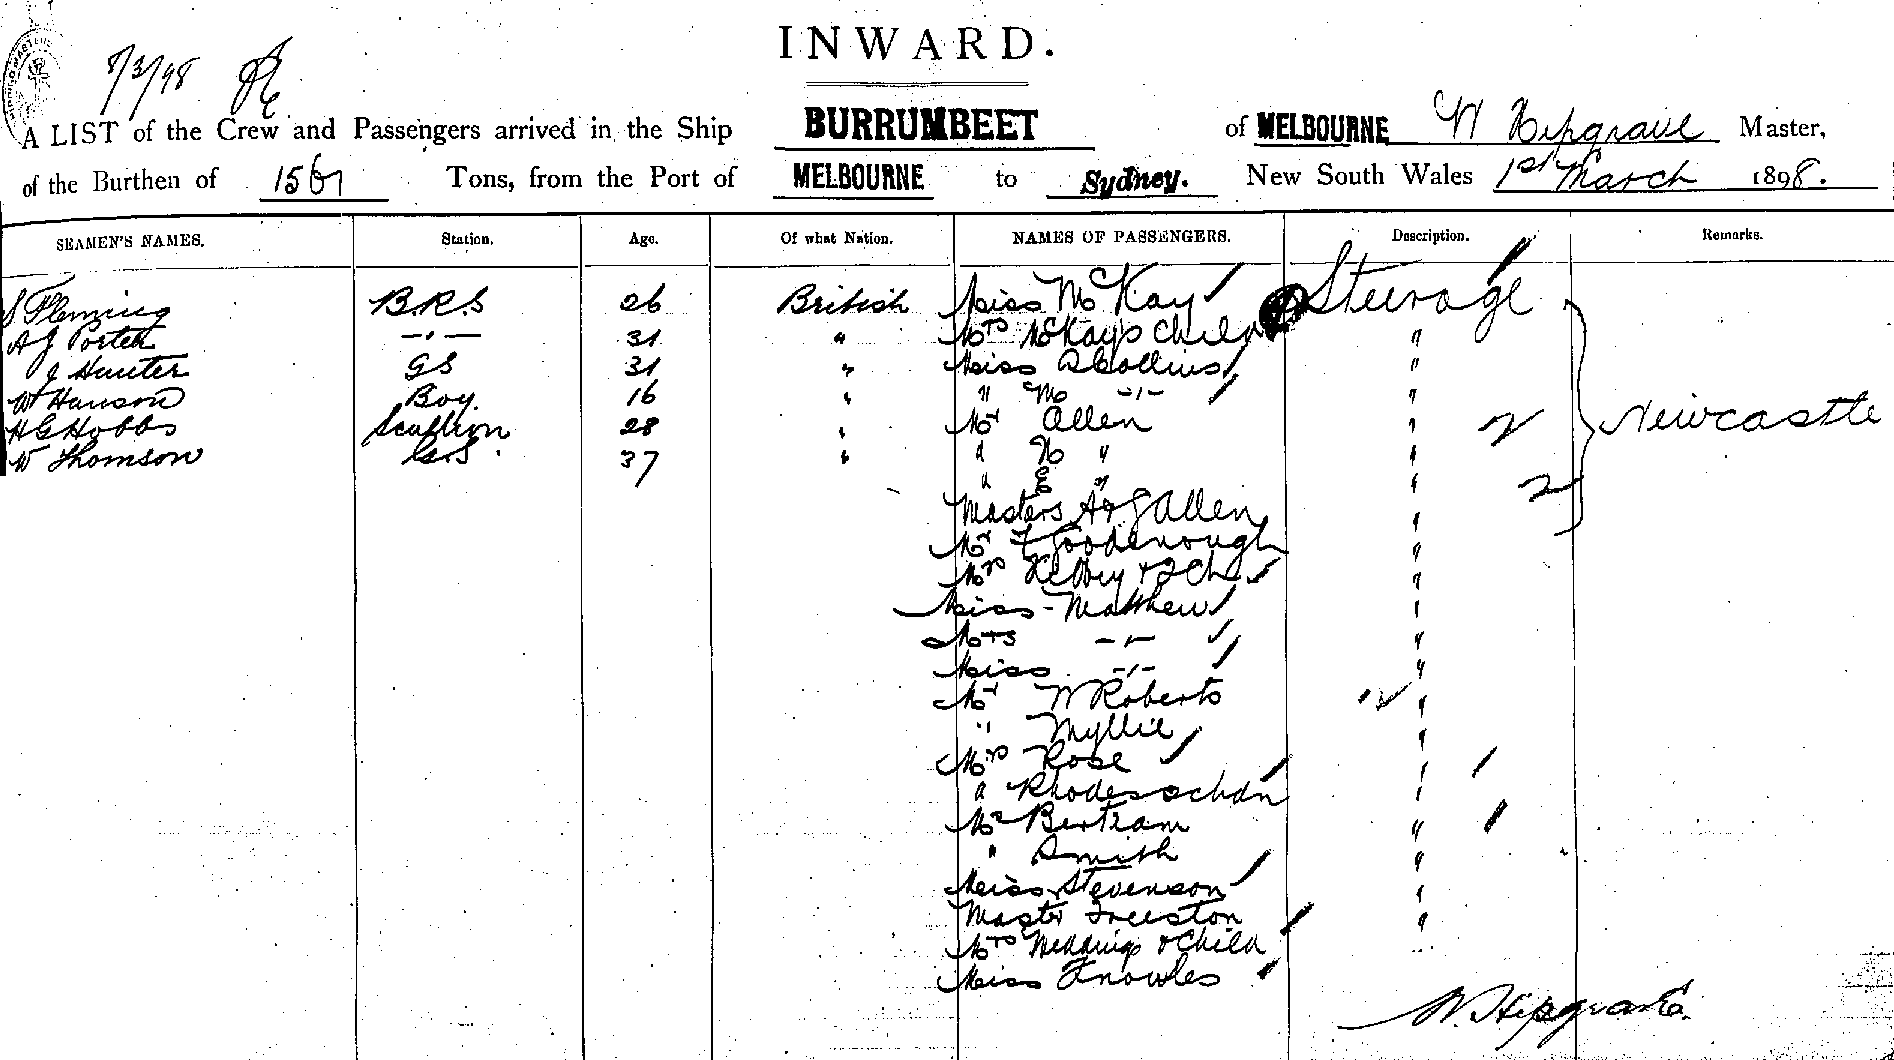 INWARD.
8/3/98
A LIST of the Crew and Passengers arrived in the Ship BURRUMBEET of MELBOURNE W Hipgrave Master,
of the Burthen of Tons, from the Port of MELBOURNE to Sydney. New South Wales 1st March 1898.
SEAMEN'S NAMES. Station. Age. Of what Nation. NAMES OF PASSENGERS. Description. Remarks.
S Fleming B.R.S 26 British Miss McKay Steerage
A J Porter —"— 31 " Mrs "
J Hunter GS 31 " Miss Collins "
W Hanson Boy 16 " " M —"— "
H G Hobbs Scullion 28 " Mr Allen " 2 Newcastle
W Thomson G.S. 37 " " " "
" E " " 2
Masters A & G Allen "
Mr Goodenough "
Mrs "
Miss Matthew "
Mrs —"— "
Miss —"— "
Mr W Roberts "
" Wyllie "
Mrs Rose "
" Rhodes "
Mr Bertram "
" Smith "
Miss Stevenson "
Master Freeston "
Mrs & Child "
Miss Knowles
W. Hipgrave.